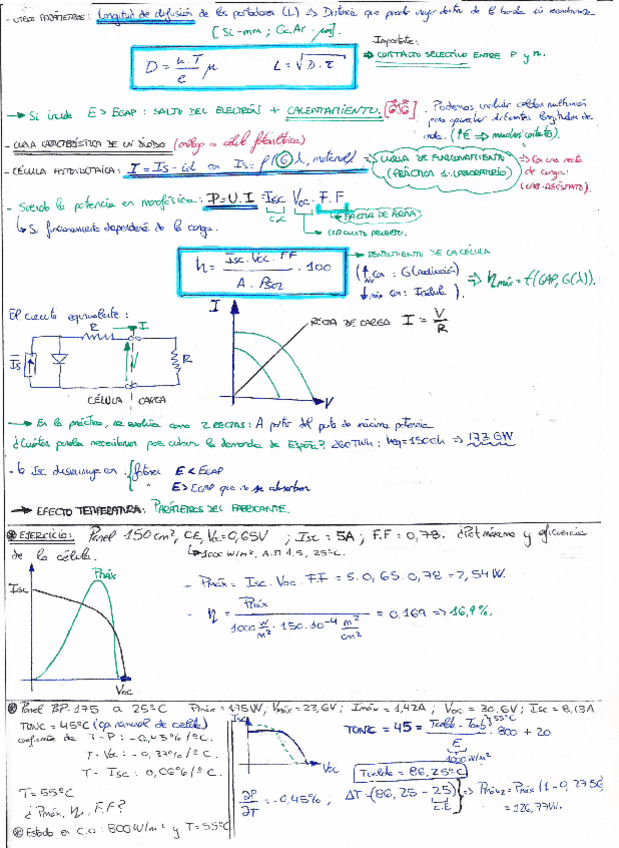 - OTROS PARÁMETROS: Longitud de difusión de los portadores (L) => Distancia que puede viajar dentro de la banda sin recombinarse
[Si-mm ; GaAr-µm].
D = K.T/e µ L = √D.τ
Importante:
=> CONTACTO SELECTIVO ENTRE P y n.
→ Si incide E > EGAP: SALTO DEL ELECTRÓN + CALENTAMIENTO.
Podemos incluir células multiunión
para aprovechar diferentes longitudes de
onda. (↑E => muchos contactos).
- CURVA CARACTERÍSTICA DE UN DIODO (análoga a célula fotovoltaica)
- CÉLULA FOTOVOLTAICA: I = Is - id con Is = f(G, λ, material)
=> CURVA DE FUNCIONAMIENTO
(PRÁCTICA 1: LABORATORIO)
=> Con una recta
de carga:
- Siendo la potencia en monofásica: P = U.I = Isc Voc . F.F
FACTOR DE FORMA
C.C
CIRCUITO ABIERTO.
↳ Su funcionamiento dependerá de la carga.
η = Isc.Voc.FF / A.Psol . 100
→ RENDIMIENTO DE LA CÉLULA
=> η máx = f(GAP, G(λ)).
El circuito equivalente:
R
I
Is
V
R
CÉLULA | CARGA
I
RECTA DE CARGA I = V/R
V
→ En la práctica, se evalúa como 2 RECTAS: A partir del punto de máxima potencia
¿Cuántos paneles necesitamos para cubrir la demanda de España? 260TWh; heq=1500h => 173 GW
- La Isc disminuye con { fotones E < EGAP
" E > EGAP que no se absorben
→ EFECTO TEMPERATURA: PARÁMETROS DEL FABRICANTE.
⊛ EJERCICIO: Panel 150cm², CE, Voc=0,65V ; Isc = 5A ; F.F = 0,78. ¿Pot máxima y eficiencia
de la célula.
↳ 1000 W/m², A.M 1.5, 25ºC.
Isc
Pmáx
Voc
- Pmáx = Isc. Voc. F.F = 5.0,65.0,78 = 2,54W.
- η = Pmáx / 1000 W/m² . 150.10⁻⁴ m²/cm² = 0.169 => 16,9%.
⊛ Panel BP-175 a 25ºC Pmáx = 175W; Vmáx = 23,6V; Imáx = 7,42A; Voc = 30.6V; Isc = 8,13A
TONC = 45ºC (op. nominal de celda)
coeficiente de T - P: -0,45%/ºC.
T - Voc: -0,37%/ºC.
T - Isc: 0,06%/ºC.
T = 55ºC
¿Pmáx, η, F.F?
⊛ Estado en C.O: 800W/m² y T=55ºC
Isc
Voc
TONC = 45 = Tcelda - Tamb / E . 800 + 20
55ºC
1000 W/m²
Tcelda = 86,25ºC
∂P/∂T = -0,45% ; ΔT = (86,25 - 25)
C.E
=> Pmáx2 = Pmáx (1 - 0,2756)
= 126,77W.